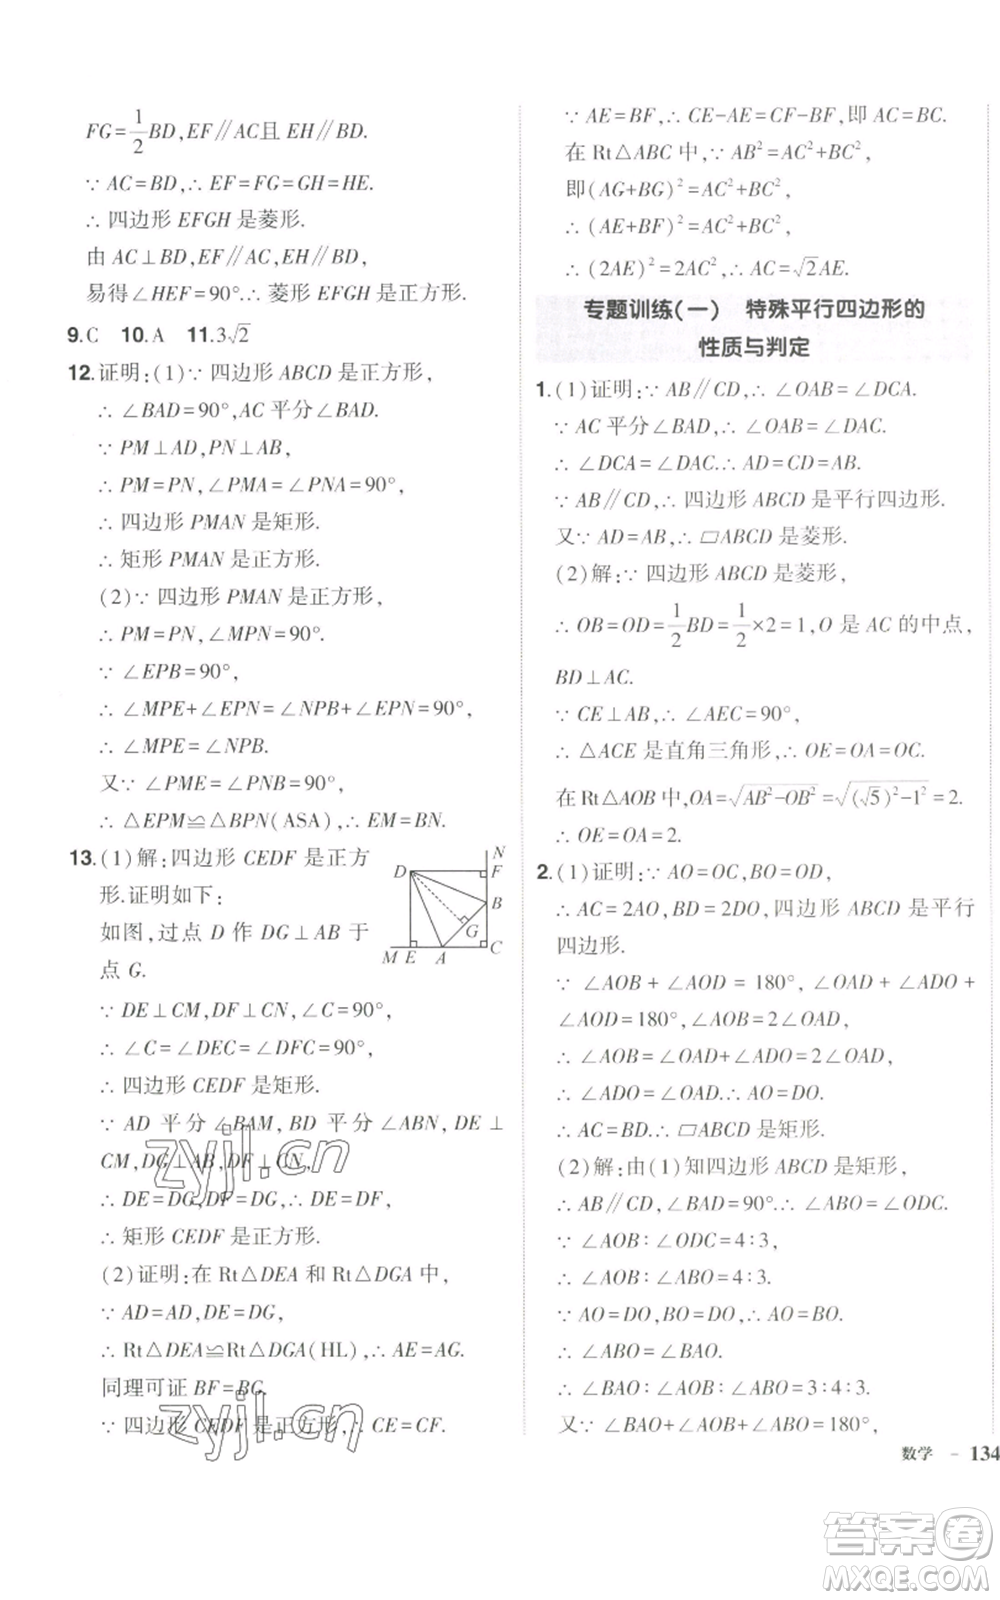 FG=1/2BD,EF∥AC且EH∥BD.
∵AC=BD,∴EF=FG=GH=HE.
∴四边形EFGH是菱形.
由AC⊥BD,EF∥AC,EH∥BD,
易得∠HEF=90°.∴菱形EFGH是正方形.
9.C 10.A 11.3√2
12.证明:(1)∵四边形ABCD是正方形,
∴∠BAD=90°,AC平分∠BAD.
∵PM⊥AD,PN⊥AB,
∴PM=PN,∠PMA=∠PNA=90°,
∴四边形PMAN是矩形.
∴矩形PMAN是正方形.
(2)∵四边形PMAN是正方形,
∴PM=PN,∠MPN=90°.
∵∠EPB=90°,
∴∠MPE+∠EPN=∠NPB+∠EPN=90°,
∴∠MPE=∠NPB.
又∵∠PME=∠PNB=90°,
∴△EPM≌△BPN(ASA),∴EM=BN.
13.(1)解:四边形CEDF是正方
形.证明如下:
如图,过点D作DG⊥AB于
点G.
N
D F
B
G
M E A C
∵DE⊥CM,DF⊥CN,
∴∠C=∠DEC=∠DFC=90°,
∴四边形CEDF是矩形.
∵AD平分∠BAM,BD平分∠ABN,DE⊥
CM,DG⊥AB,DF⊥CN,
∴DE=DG,DF=DG,∴DE=DF,
∴矩形CEDF是正方形.
(2)证明:在Rt△DEA和Rt△DGA中,
∵AD=AD,DE=DG,
∴Rt△DEA≌Rt△DGA(HL),∴AE=AG.
同理可证BF=BG.
∵四边形CEDF是正方形,∴CE=CF.
∵AE=BF,∴CE-AE=CF-BF,即AC=BC.
在Rt△ABC中,∵AB²=AC²+BC²,
即(AG+BG)²=AC²+BC²,
∴(AE+BF)²=AC²+BC²,
∴(2AE)²=2AC²,∴AC=√2AE.
专题训练(一) 特殊平行四边形的
性质与判定
1.(1)证明:∵AB∥CD,∴∠OAB=∠DCA.
∵AC平分∠BAD,∴∠OAB=∠DAC.
∴∠DCA=∠DAC.∴AD=CD=AB.
∵AB∥CD,∴四边形ABCD是平行四边形.
又∵AD=AB,∴▱ABCD是菱形.
(2)解:∵四边形ABCD是菱形,
∴OB=OD=1/2BD=1/2×2=1,O是AC的中点,
BD⊥AC.
∵CE⊥AB,∴∠AEC=90°,
∴△ACE是直角三角形,∴OE=OA=OC.
在Rt△AOB中,OA=√(AB²-OB²)=√((√5)²-1²)=2.
∴OE=OA=2.
2.(1)证明:∵AO=OC,BO=OD,
∴AC=2AO,BD=2DO,四边形ABCD是平行
四边形.
∵∠AOB+∠AOD=180°,∠OAD+∠ADO+
∠AOD=180°,∠AOB=2∠OAD,
∴∠AOB=∠OAD+∠ADO=2∠OAD,
∴∠ADO=∠OAD.∴AO=DO.
∴AC=BD.∴▱ABCD是矩形.
(2)解:由(1)知四边形ABCD是矩形,
∴AB∥CD,∠BAD=90°.∴∠ABO=∠ODC.
∵∠AOB∶∠ODC=4∶3,
∴∠AOB∶∠ABO=4∶3.
∵AO=DO,BO=DO,∴AO=BO.
∴∠ABO=∠BAO.
∴∠BAO∶∠AOB∶∠ABO=3∶4∶3.
又∵∠BAO+∠AOB+∠ABO=180°,
数学 - 134
zyjl.cn
zyjl.cn
答案卷
MXQE.COM